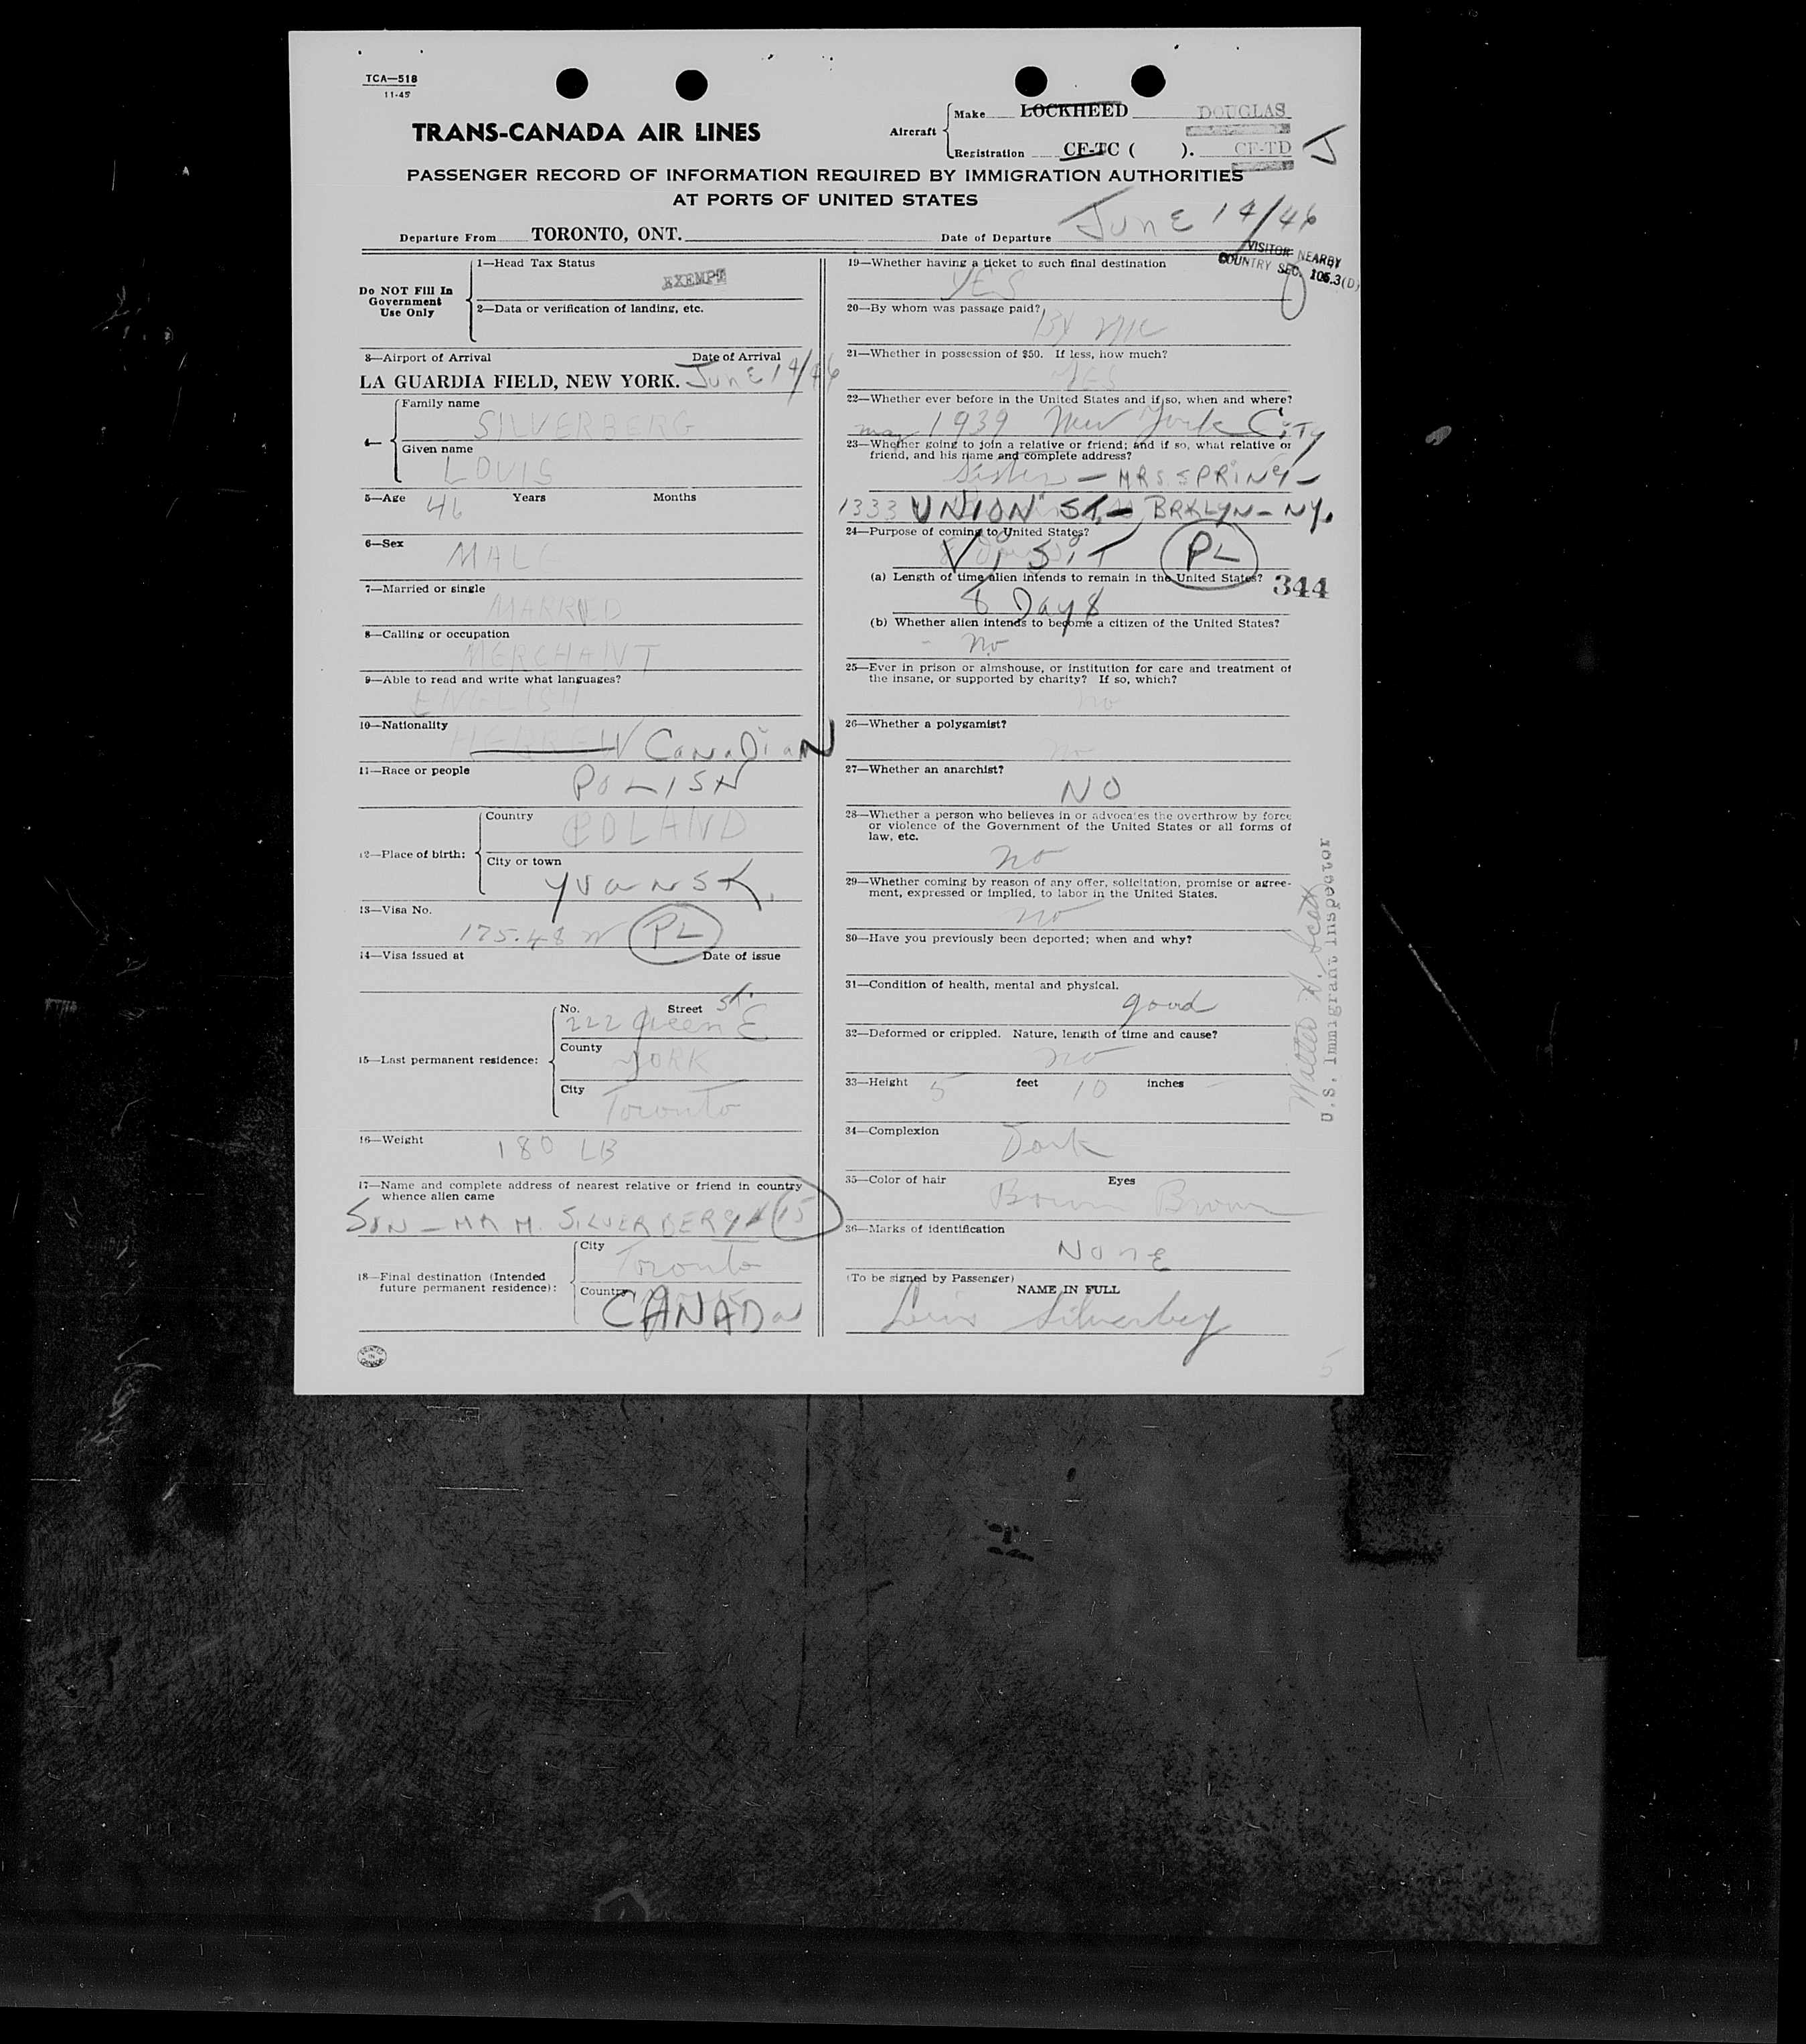 TCA—518
11-45
TRANS-CANADA AIR LINES
Aircraft
Make LOCKHEED DOUGLAS
Registration CF-TC ( ). CF-TD J
PASSENGER RECORD OF INFORMATION REQUIRED BY IMMIGRATION AUTHORITIES
AT PORTS OF UNITED STATES
Departure From TORONTO, ONT. Date of Departure JUNE 14/46
VISITOR NEARBY
COUNTRY SEC. 105.3(D)
Do NOT Fill In
Government
Use Only
1—Head Tax Status
EXEMPT
2—Data or verification of landing, etc.
3—Airport of Arrival Date of Arrival
LA GUARDIA FIELD, NEW YORK. JUNE 14/46
4—
Family name
SILVERBERG
Given name
LOUIS
5—Age 46 Years Months
6—Sex
MALE
7—Married or single
MARRIED
8—Calling or occupation
MERCHANT
9—Able to read and write what languages?
ENGLISH
10—Nationality
HEBREW CANADIAN
11—Race or people
POLISH
12—Place of birth:
Country
POLAND
City or town
YVANSK.
13—Visa No.
175.48 PL
14—Visa issued at Date of issue
15—Last permanent residence:
No. Street St.
222 Queen E
County
YORK
City
Toronto
16—Weight
180 LB
17—Name and complete address of nearest relative or friend in country
whence alien came
SON — MR M. SILVERBERG 15
18—Final destination (Intended
future permanent residence):
City
Toronto
Country
CANADA
PRINTED IN CANADA
19—Whether having a ticket to such final destination
YES
20—By whom was passage paid?
BY ME
21—Whether in possession of $50. If less, how much?
YES
22—Whether ever before in the United States and if so, when and where?
may 1939 New York City
23—Whether going to join a relative or friend; and if so, what relative or
friend, and his name and complete address?
Sister — MRS. SPRING —
1333 UNION ST. — BRKLYN — NY.
24—Purpose of coming to United States?
VISIT PL
(a) Length of time alien intends to remain in the United States? 344
8 Days
(b) Whether alien intends to become a citizen of the United States?
- no
25—Ever in prison or almshouse, or institution for care and treatment of
the insane, or supported by charity? If so, which?
no
26—Whether a polygamist?
no
27—Whether an anarchist?
NO
28—Whether a person who believes in or advocates the overthrow by force
or violence of the Government of the United States or all forms of
law, etc.
no
29—Whether coming by reason of any offer, solicitation, promise or agree-
ment, expressed or implied, to labor in the United States.
no
30—Have you previously been deported; when and why?
31—Condition of health, mental and physical.
good
32—Deformed or crippled. Nature, length of time and cause?
no
33—Height 5 feet 10 inches
34—Complexion
Dark
35—Color of hair Eyes
Brown Brown
36—Marks of identification
NONE
(To be signed by Passenger)
NAME IN FULL
Louis Silverberg
U.S. Immigrant Inspector
5